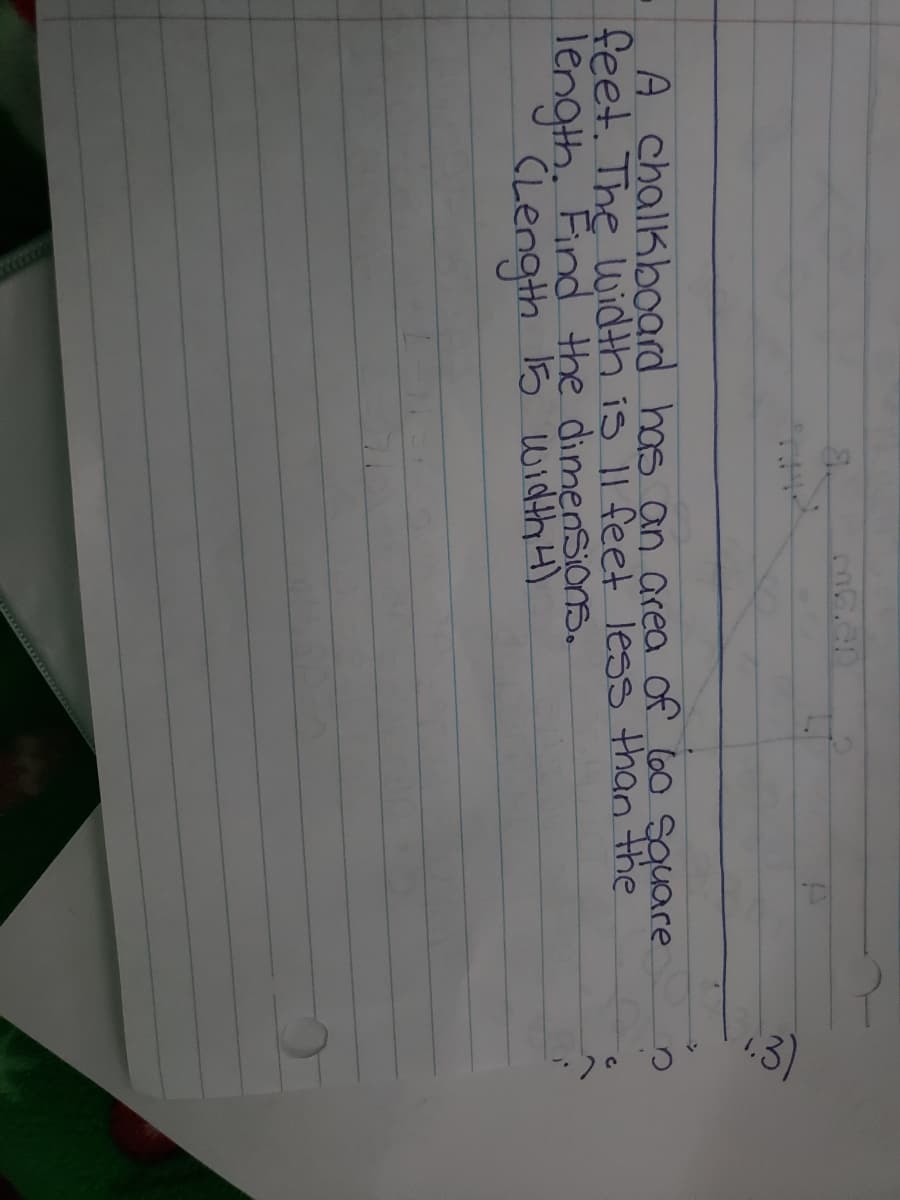 A chalkboard has an area of 60 square
feet. The width is 11 feet less than the
length. Find the dimensions.
(Length 15 width, 4)